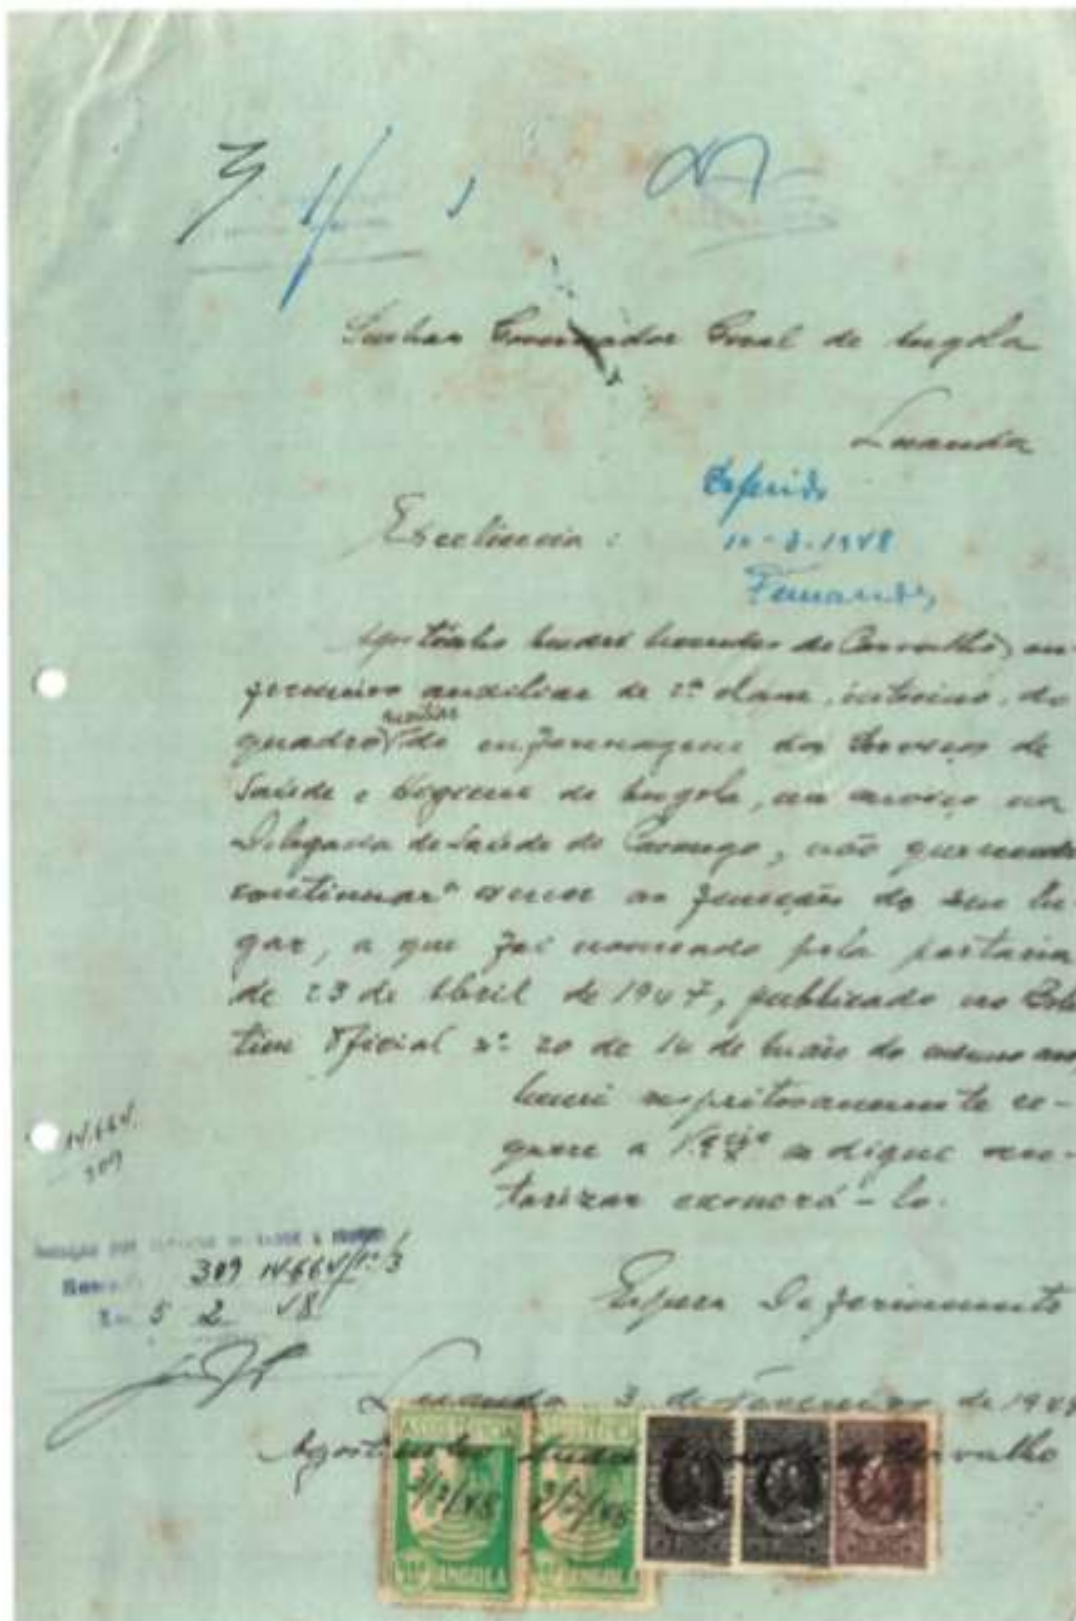 Senhor Governador Geral de Angola
Luanda
Deferido
10-3-1948
Fernandes
Excelência:
Agostinho André Mendes de Carvalho, en-
fermeiro auxiliar de 2ª classe, interino, do
quadro auxiliar de enfermagem dos Serviços de
Saúde e Higiene de Angola, em serviço na
Delegacia de Saúde do Camongo, não querendo
continuar a exercer as funções do seu lu-
gar, a que foi nomeado pela portaria
de 23 de Abril de 1947, publicado no Bole-
tim Oficial nº 20 de 14 de Maio do mesmo ano,
mui respeitosamente re-
quere a V. Exciª se digne au-
torizar exonerá-lo.
14.664
309
309 14664/1ª/3
5 2 48
Espera Deferimento
Luanda 3 de Fevereiro de 1948
Agostinho André Mendes de Carvalho
ASSISTÊNCIA
3/2/948
ANGOLA
3/2/948
ANGOLA